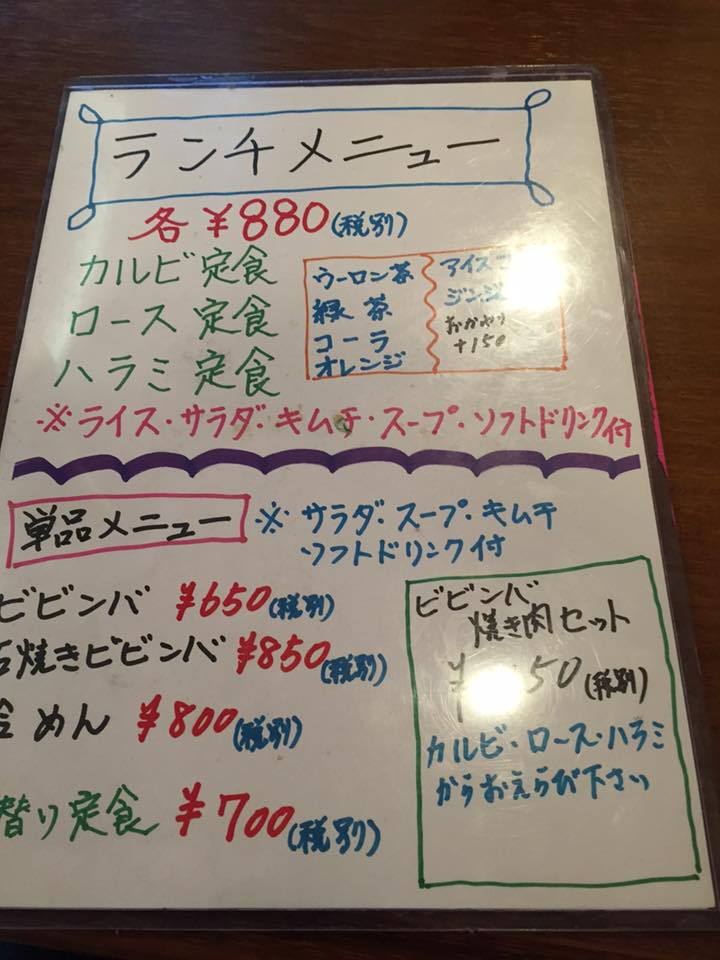 ランチメニュー
各 ¥880(税別)
カルビ定食
ロース定食
ハラミ定食
ウーロン茶
緑茶
コーラ
オレンジ
アイス
ジンジ
おかわり
+150
※ライス・サラダ・キムチ・スープ・ソフトドリンク付
単品メニュー
※ サラダ・スープ・キムチ
ソフトドリンク付
ビビンバ ¥650(税別)
石焼きビビンバ ¥850(税別)
めん ¥800(税別)
替り定食 ¥700(税別)
ビビンバ
焼き肉セット
(税別)
カルビ・ロース・ハラミ
からおえらび下さい